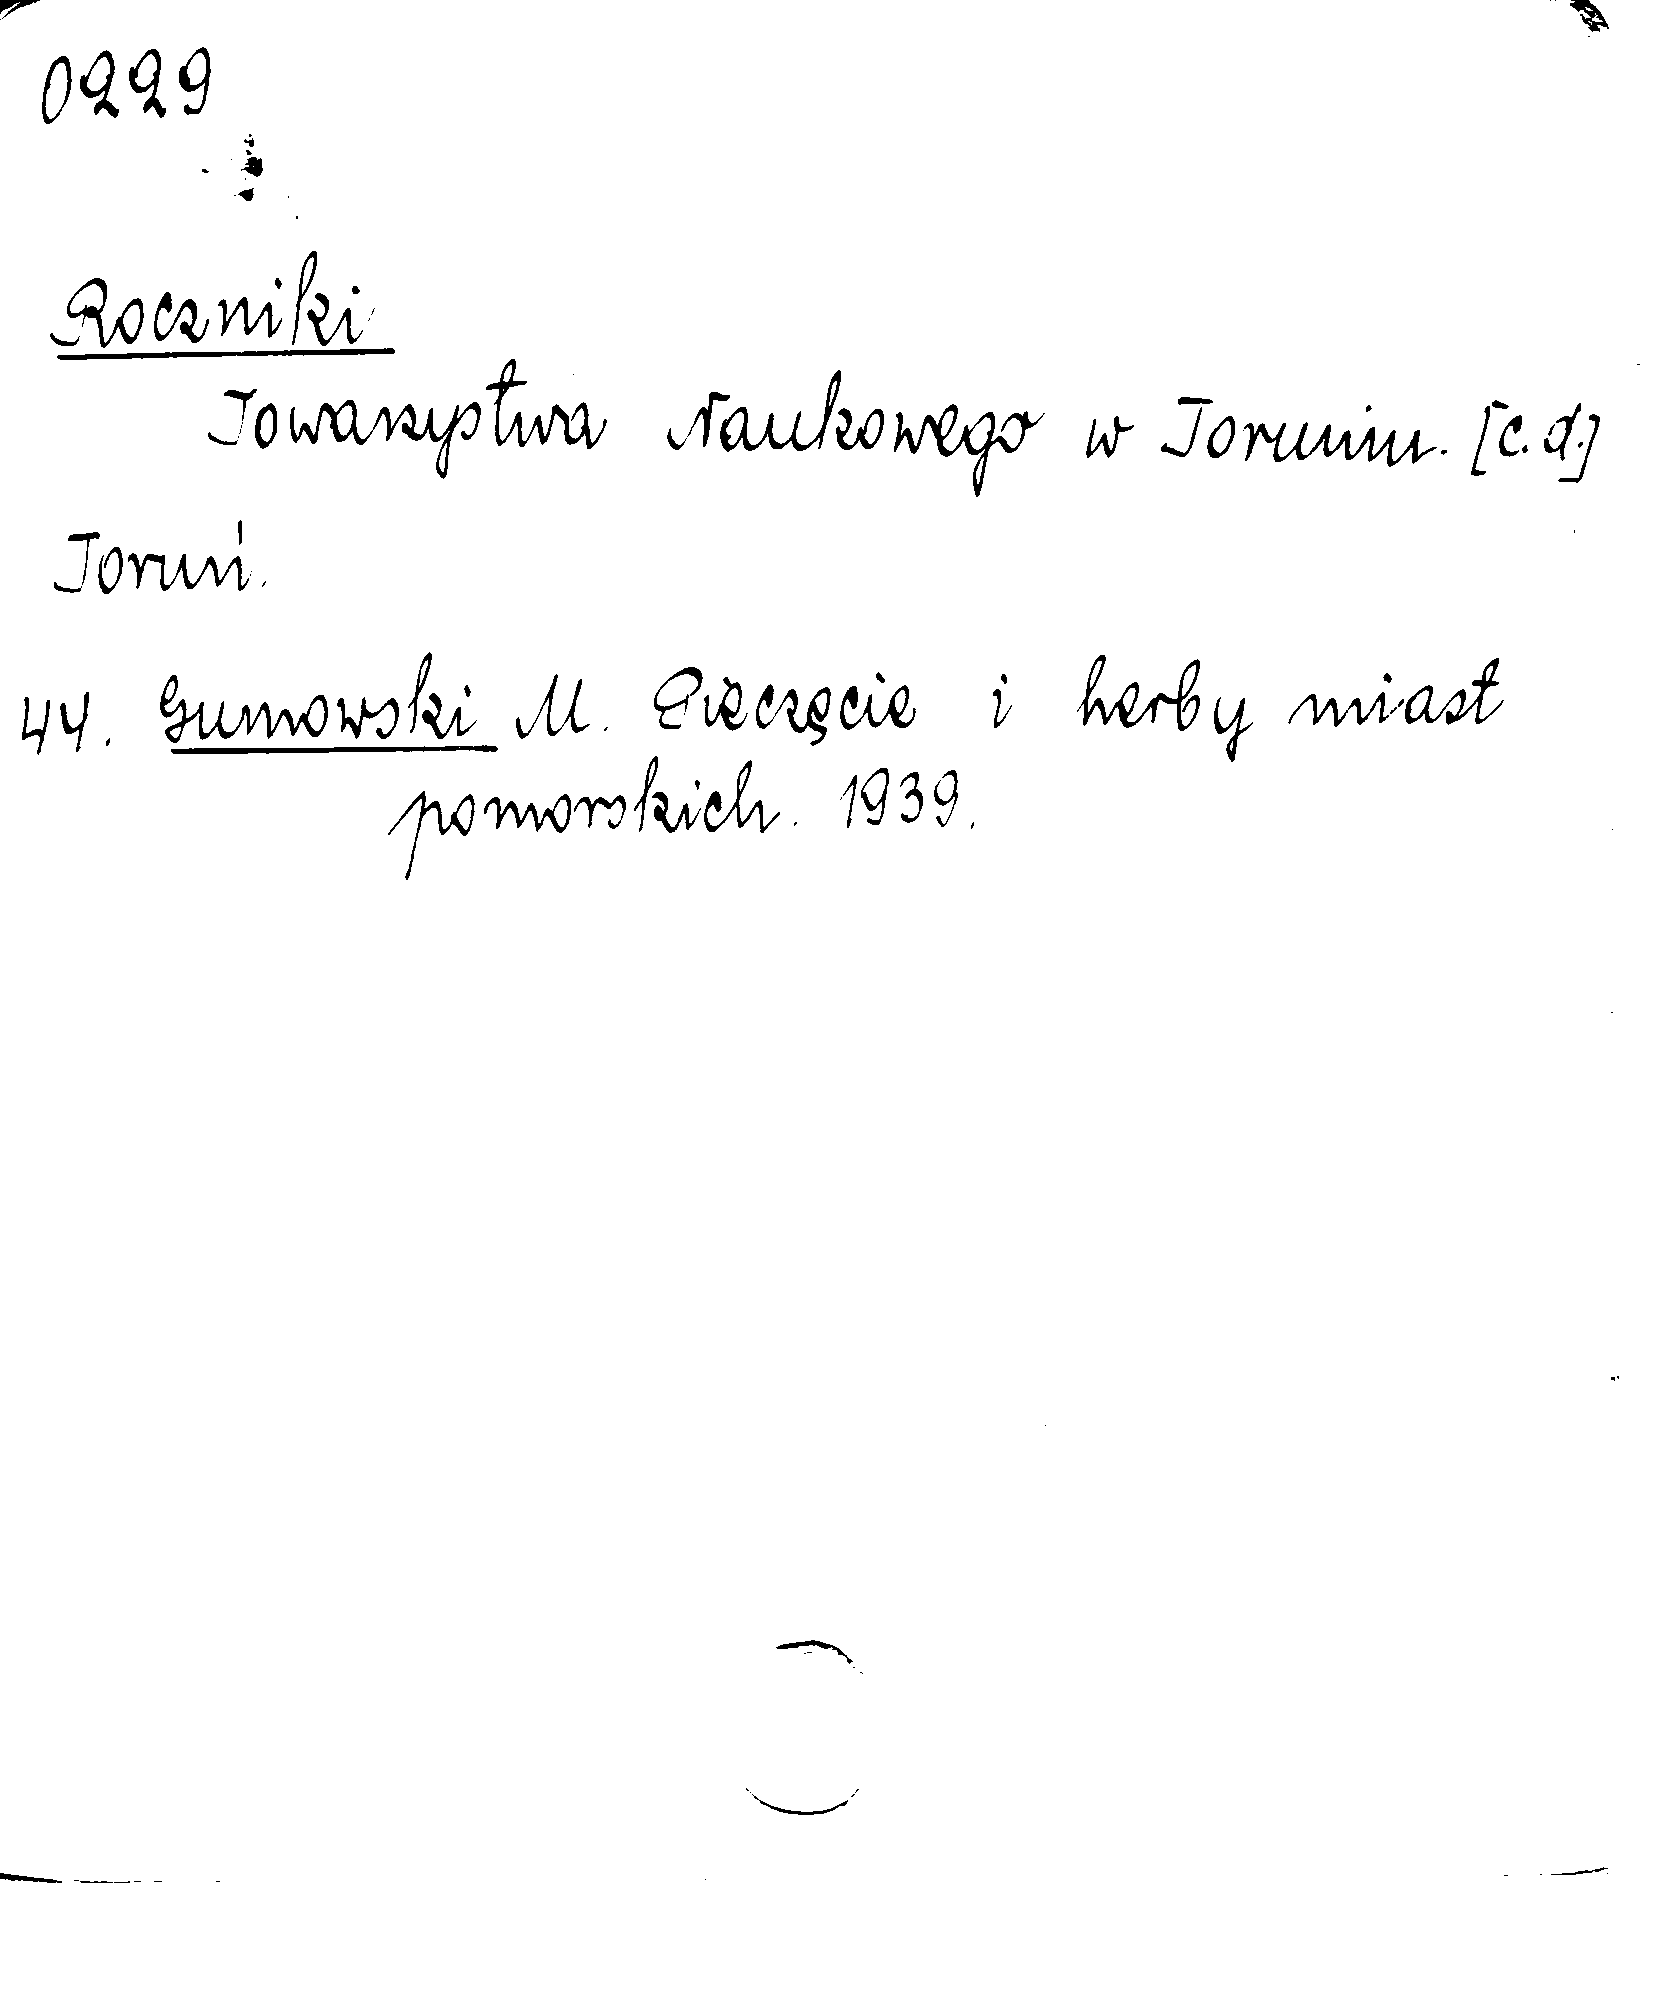 0229
Roczniki
Towarzystwa Naukowego w Toruniu. [c.d.]
Toruń.
44. Gumowski M. Pieczęcie i herby miast
pomorskich. 1939.